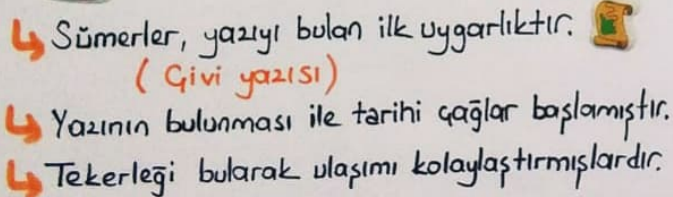 Sümerler, yazıyı bulan ilk uygarlıktır.
(Çivi yazısı)
Yazının bulunması ile tarihi çağlar başlamıştır.
Tekerleği bularak ulaşımı kolaylaştırmışlardır.